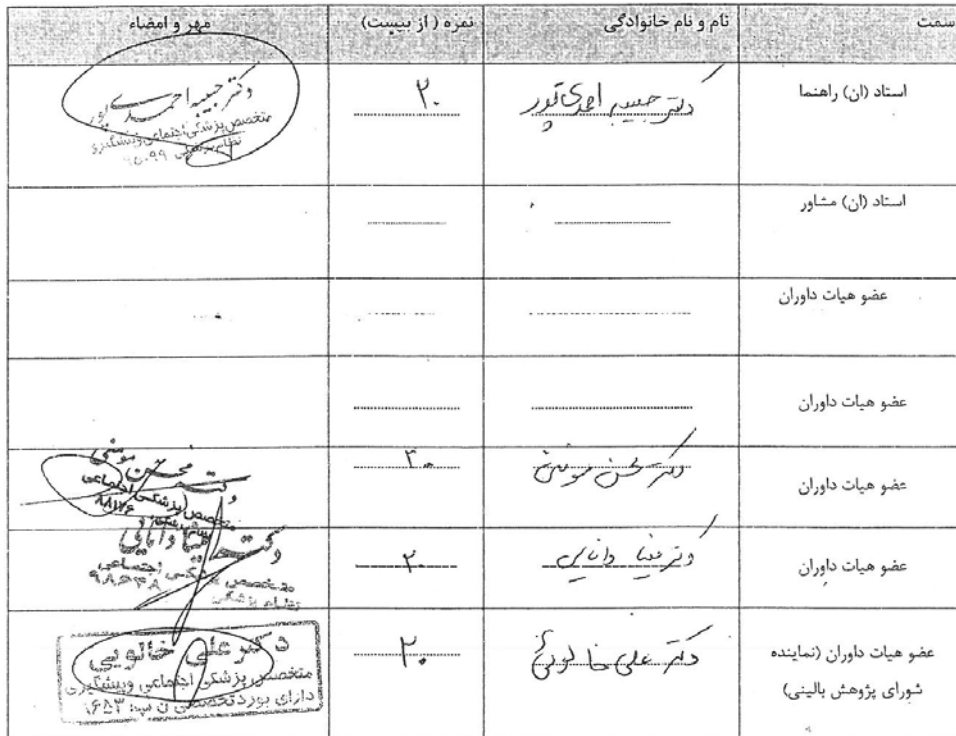 سمت	نام و نام خانوادگی	نمره ( از بیست)	مهر و امضاء
استاد (ان) راهنما	دکتر حبیبه احمدی پور	۲۰	دکتر حبیبه احمدی پور
متخصص پزشکی اجتماعی و پیشگیری
نظام پزشکی
استاد (ان) مشاور
عضو هیات داوران
عضو هیات داوران
عضو هیات داوران	دکتر محسن مومنی	۲۰	دکتر محسن مومنی
متخصص پزشکی اجتماعی
عضو هیات داوران	دکتر مینا دانایی	۲۰	دکتر مینا دانایی
متخصص پزشکی اجتماعی
نظام پزشکی
عضو هیات داوران (نماینده	دکتر علی خالوئی	۲۰	دکتر علی خالویی
شورای پژوهش بالینی)	متخصص پزشکی اجتماعی وپیشگیری
دارای بورد تخصصی